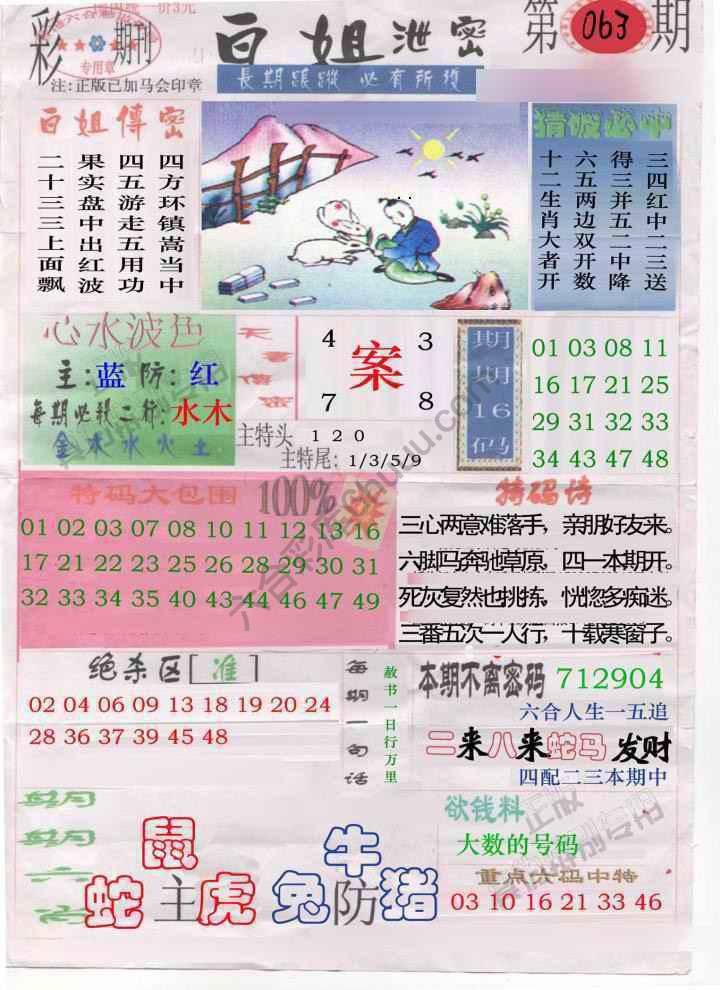 价3元
彩 期刊
专用章
注:正版已加马会印章
白姐泄密
長期跟蹤 必有所獲
第063期
白姐傳密
四方环镇嵩当中
四五游走五用功
果实盘中出红波
二十三三上面飘
猜波必中
三四红中二三送
得三并五二中降
六五两边双开数
十二生肖大者开
心水波色
主:蓝 防:红
每期必秋二行:水木
金木水火土
4 3
案
7 8
主特头 1 2 0
主特尾: 1/3/5/9
期期16码
01 03 08 11
16 17 21 25
29 31 32 33
34 43 47 48
特码大包围 100%
01 02 03 07 08 10 11 12 13 16
17 21 22 23 25 26 28 29 30 31
32 33 34 35 40 43 44 46 47 49
特码诗
三心两意难落手，亲朋好友来。
六脚马奔驰草原，四一本期开。
死灰复然也挑拣，恍惚多痴迷。
三番五次一人行，十载寒窗子。
绝杀区[准]
02 04 06 09 13 18 19 20 24
28 36 37 39 45 48
每期一句话
赦书一日行万里
本期不离密码 712904
六合人生一五追
二来八来蛇马发财
四配二三本期中
鼠
蛇主虎
牛
兔防猪
欲钱料
大数的号码
重点六码中特
03 10 16 21 33 46